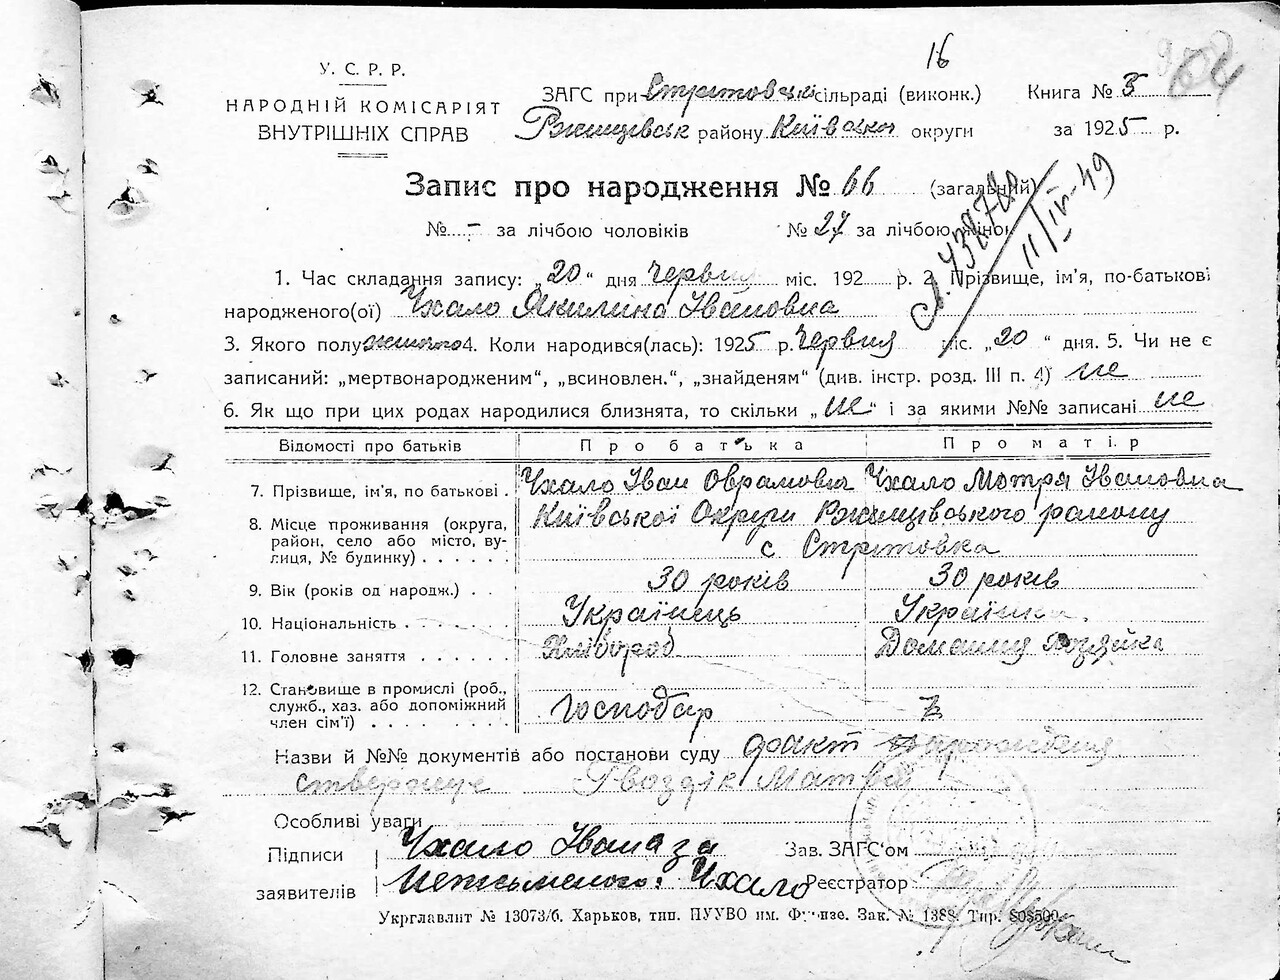 16
У. С. Р. Р.
НАРОДНІЙ КОМІСАРІЯТ
ВНУТРІШНІХ СПРАВ
ЗАГС при Стрітовській сільраді (виконк.) Книга № 3
Ржищівськ району Київської округи за 1925 р.
Запис про народження № 66 (загальний)
№ - за лічбою чоловіків № 27 за лічбою жінок
11/IV-49
1. Час складання запису: „20“ дня червня міс. 192 р. 2. Прізвище, ім’я, по-батькові
народженого(ої) Чхало Якилина Івановна
3. Якого полу жіночо 4. Коли народився(лась): 1925 р. червня міс. „20“ дня. 5. Чи не є
записаний: „мертвонародженим“, „всиновлен.“, „знайденям“ (див. інстр. розд. III п. 4) не
6. Як що при цих родах народилися близнята, то скільки „не“ і за якими №№ записані не
Відомості про батьків Про батька Про матір
7. Прізвище, ім’я, по батькові . Чхало Іван Оврамович Чхало Мотря Івановна
8. Місце проживання (округа, Київської Округи Ржищівського району
район, село або місто, ву-
лиця, № будинку) . . . . . . с Стрітовка
9. Вік (років од народж.) . . 30 років 30 років
10. Національність . . . . . . Українець Українка.
11. Головне заняття . . . . . . Хлібороб Домашня хозяйка
12. Становище в промислі (роб.,
служб., хаз. або допоміжний
член сім’ї) . . . . . . . . Господар
Назви й №№ документів або постанови суду факт народження
стверджує Гвоздік Матвій
Особливі уваги
Підписи Чхало Івана за Зав. ЗАГС‘ом
заявителів неписьменого: Чхало Реєстратор
Укрглавліт № 13073/б. Харьков, тип. ПУУВО им. Фрунзе. Зак. № 1388. Тир. 808500